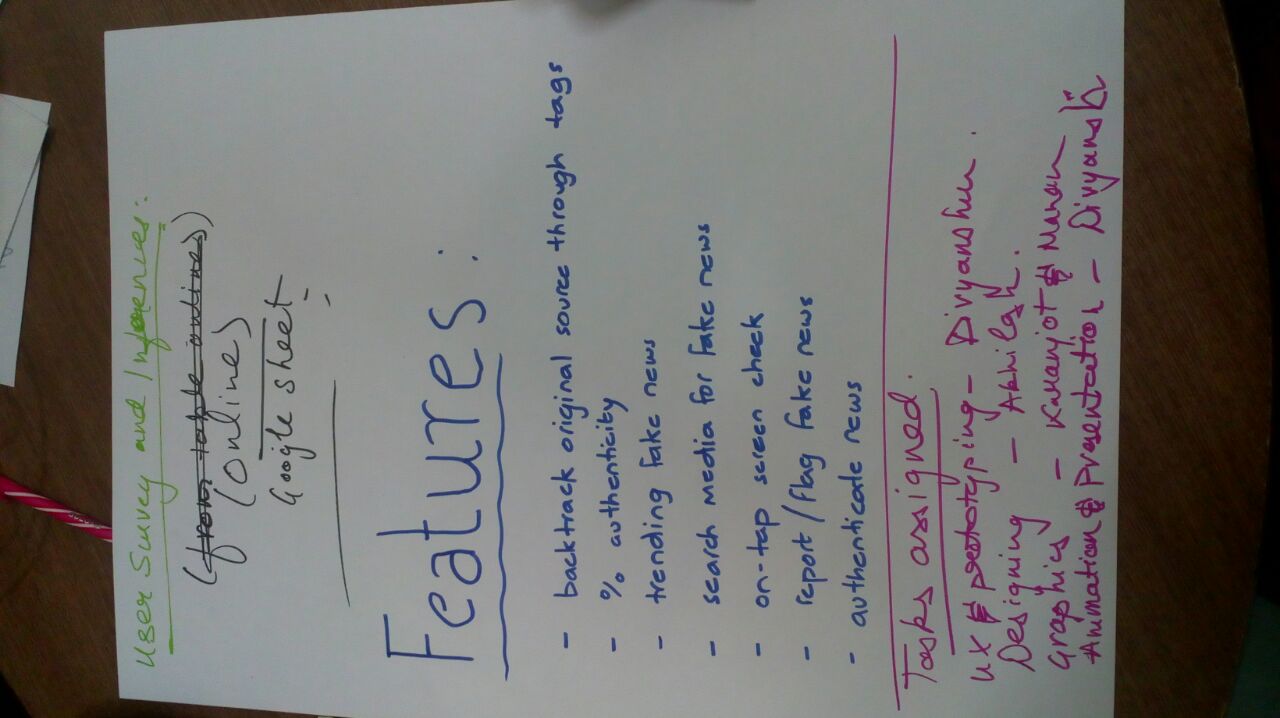 User Survey and Inferences:
(from table onlines)
(Online)
Google sheet
Features:
- backtrack original source through tags
- % authenticity
- trending fake news
- search media for fake news
- on-tap screen check
- report/flag fake news
- authenticate news
Tasks assigned.
UX & prototyping - Divyanshu.
Designing - Akhilesh.
Graphics - Karanjot & Manan
Animation & Presentation - Divyansh